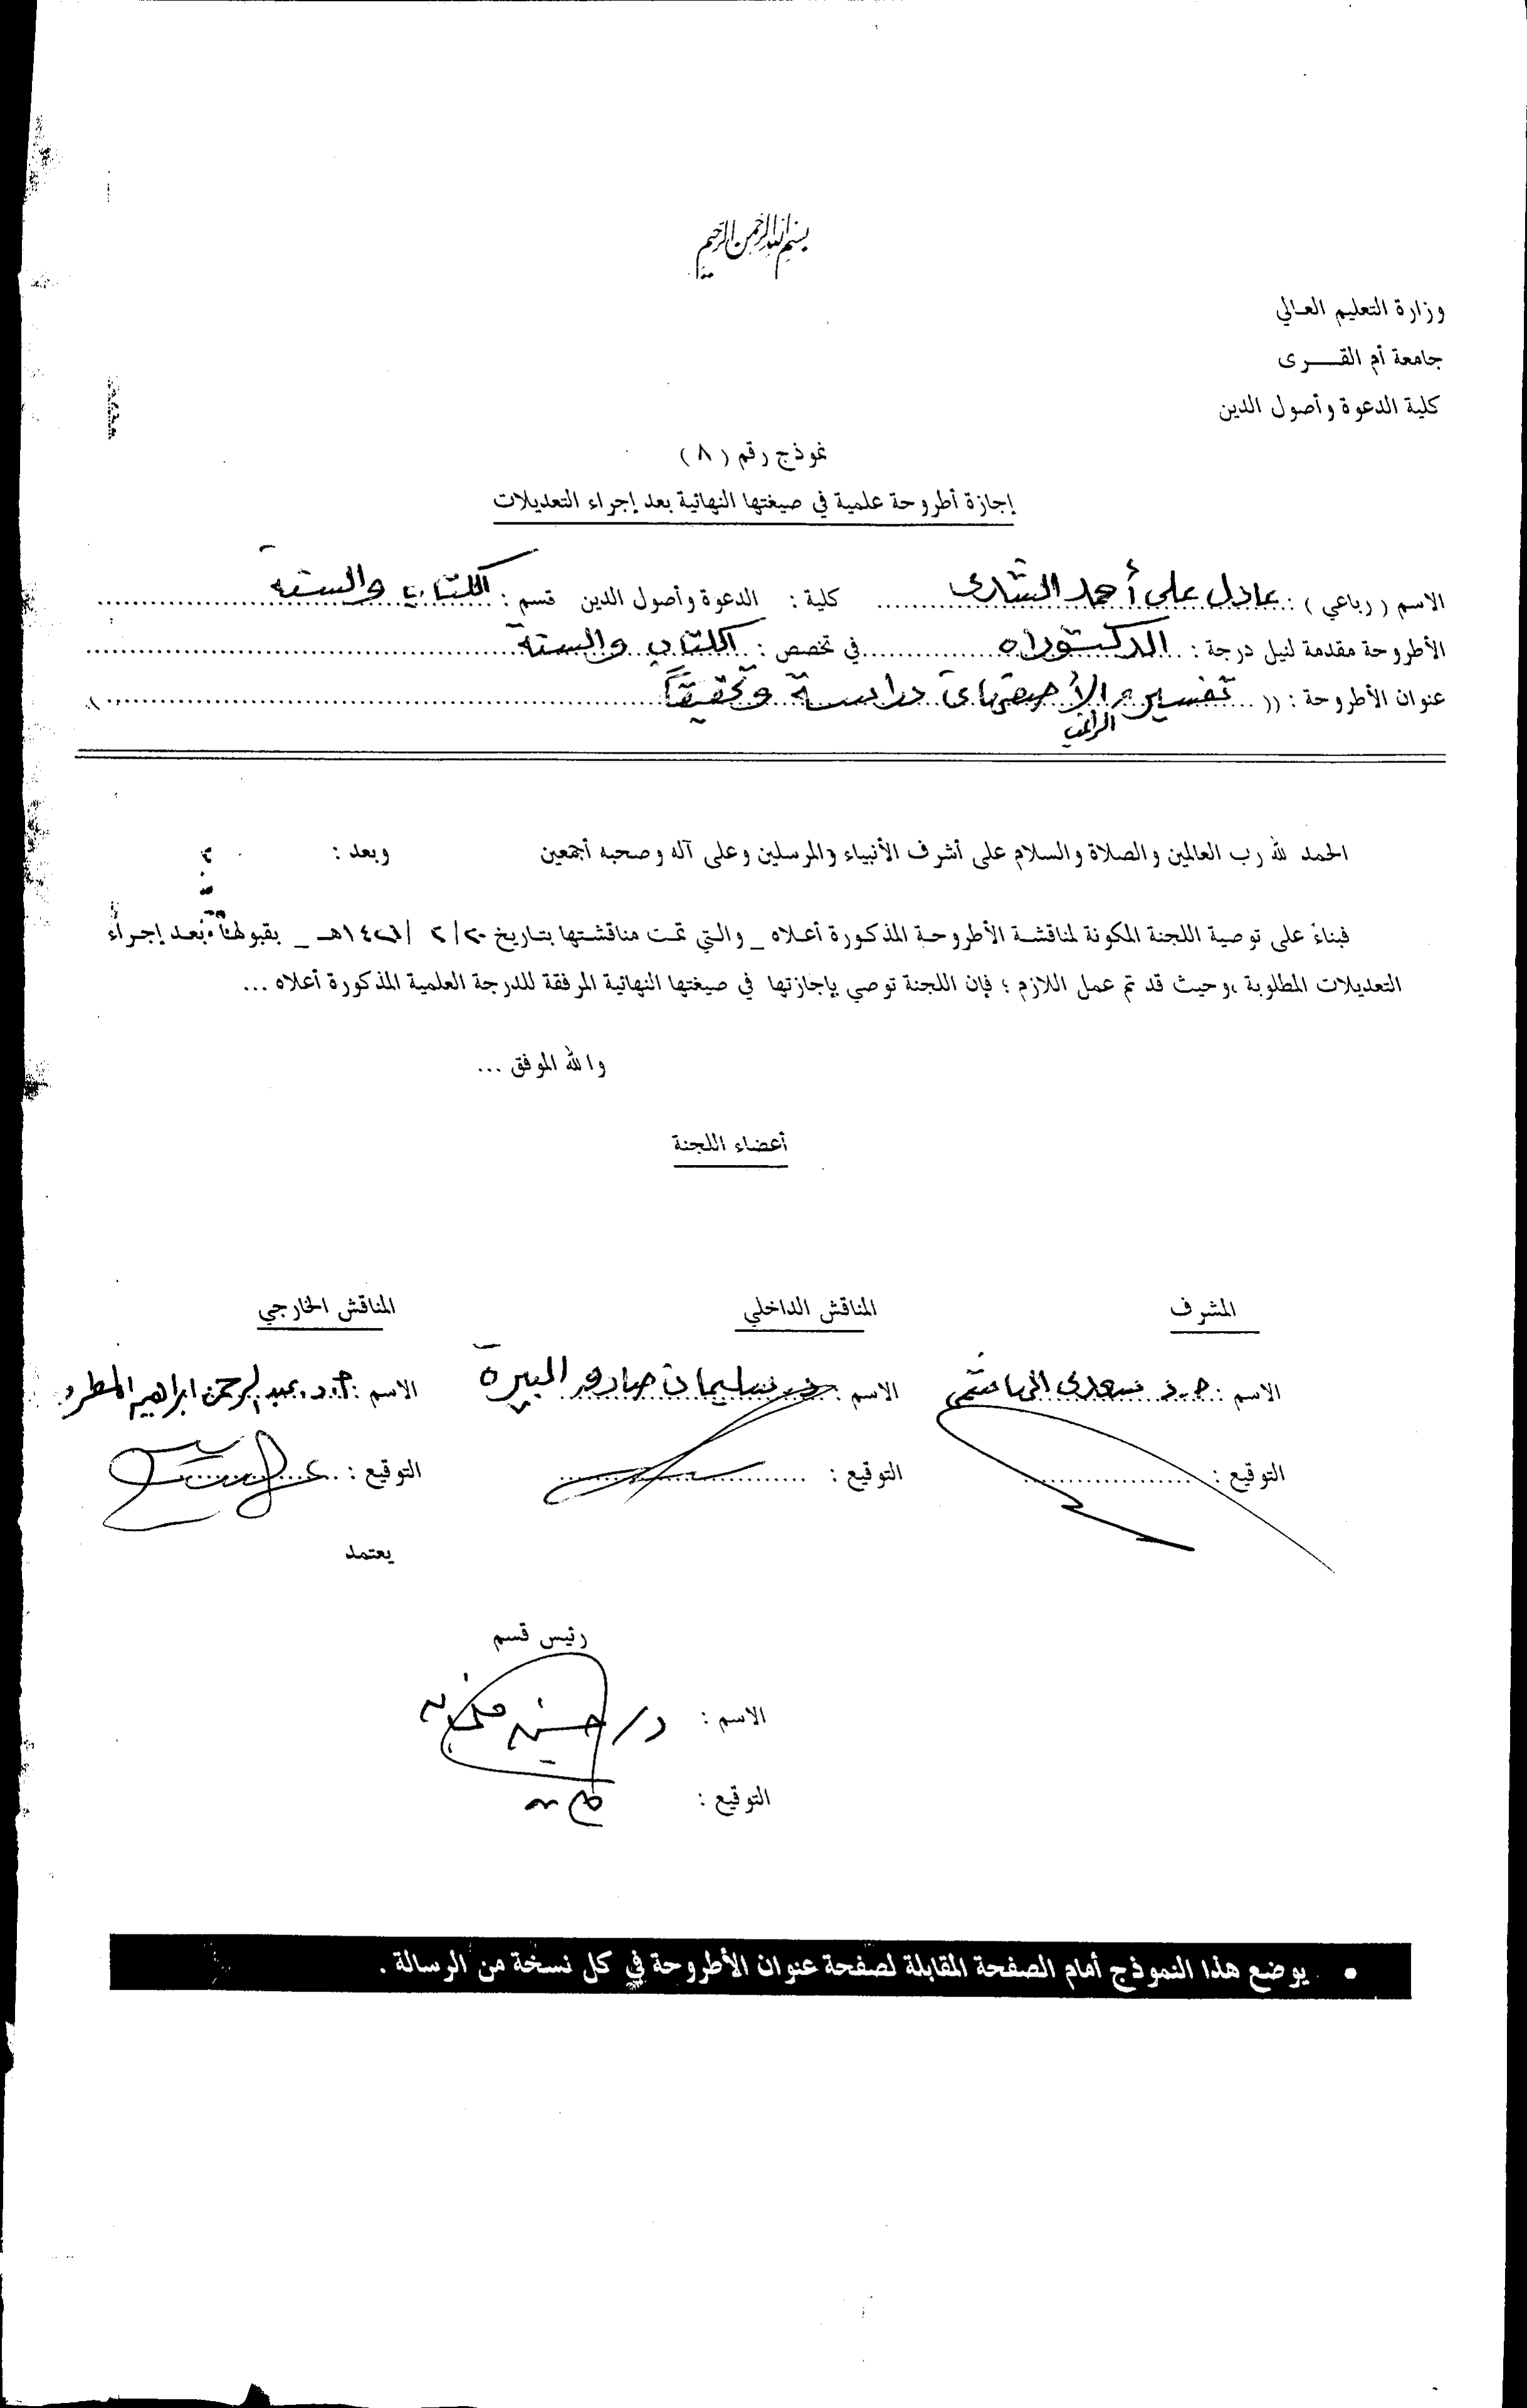 بسم الله الرحمن الرحيم
وزارة التعليم العالي
جامعة أم القــــرى
كلية الدعوة وأصول الدين
نموذج رقم ( ٨ )
إجازة أطروحة علمية في صيغتها النهائية بعد إجراء التعديلات
الاسم ( رباعي ) : عادل علي أحمد الشدي كلية : الدعوة وأصول الدين قسم : الكتاب والسنة
الأطروحة مقدمة لنيل درجة : الدكتوراه في تخصص : الكتاب والسنة
عنوان الأطروحة : (( تفسير الراغب الأصفهاني دراسة وتحقيقاً ))
الحمد لله رب العالمين والصلاة والسلام على أشرف الأنبياء والمرسلين وعلى آله وصحبه أجمعين وبعد :
فبناءً على توصية اللجنة المكونة لمناقشة الأطروحة المذكورة أعلاه _ والتي تمت مناقشتها بتاريخ ٢٠/ ٢ / هـ _ بقبولها بعد إجراء
التعديلات المطلوبة ،وحيث قد تم عمل اللازم ؛ فإن اللجنة توصي بإجازتها في صيغتها النهائية المرفقة للدرجة العلمية المذكورة أعلاه ...
والله الموفق ...
أعضاء اللجنة
المشرف المناقش الداخلي المناقش الخارجي
الاسم : أ.د سعدي الهاشمي الاسم : د. سليمان صادق البيرة الاسم : أ.د. عبد الرحمن ابراهيم المطرودي
التوقيع : التوقيع : التوقيع :
يعتمد
رئيس قسم
الاسم : د/
التوقيع :
• يوضع هذا النموذج أمام الصفحة المقابلة لصفحة عنوان الأطروحة في كل نسخة من الرسالة .